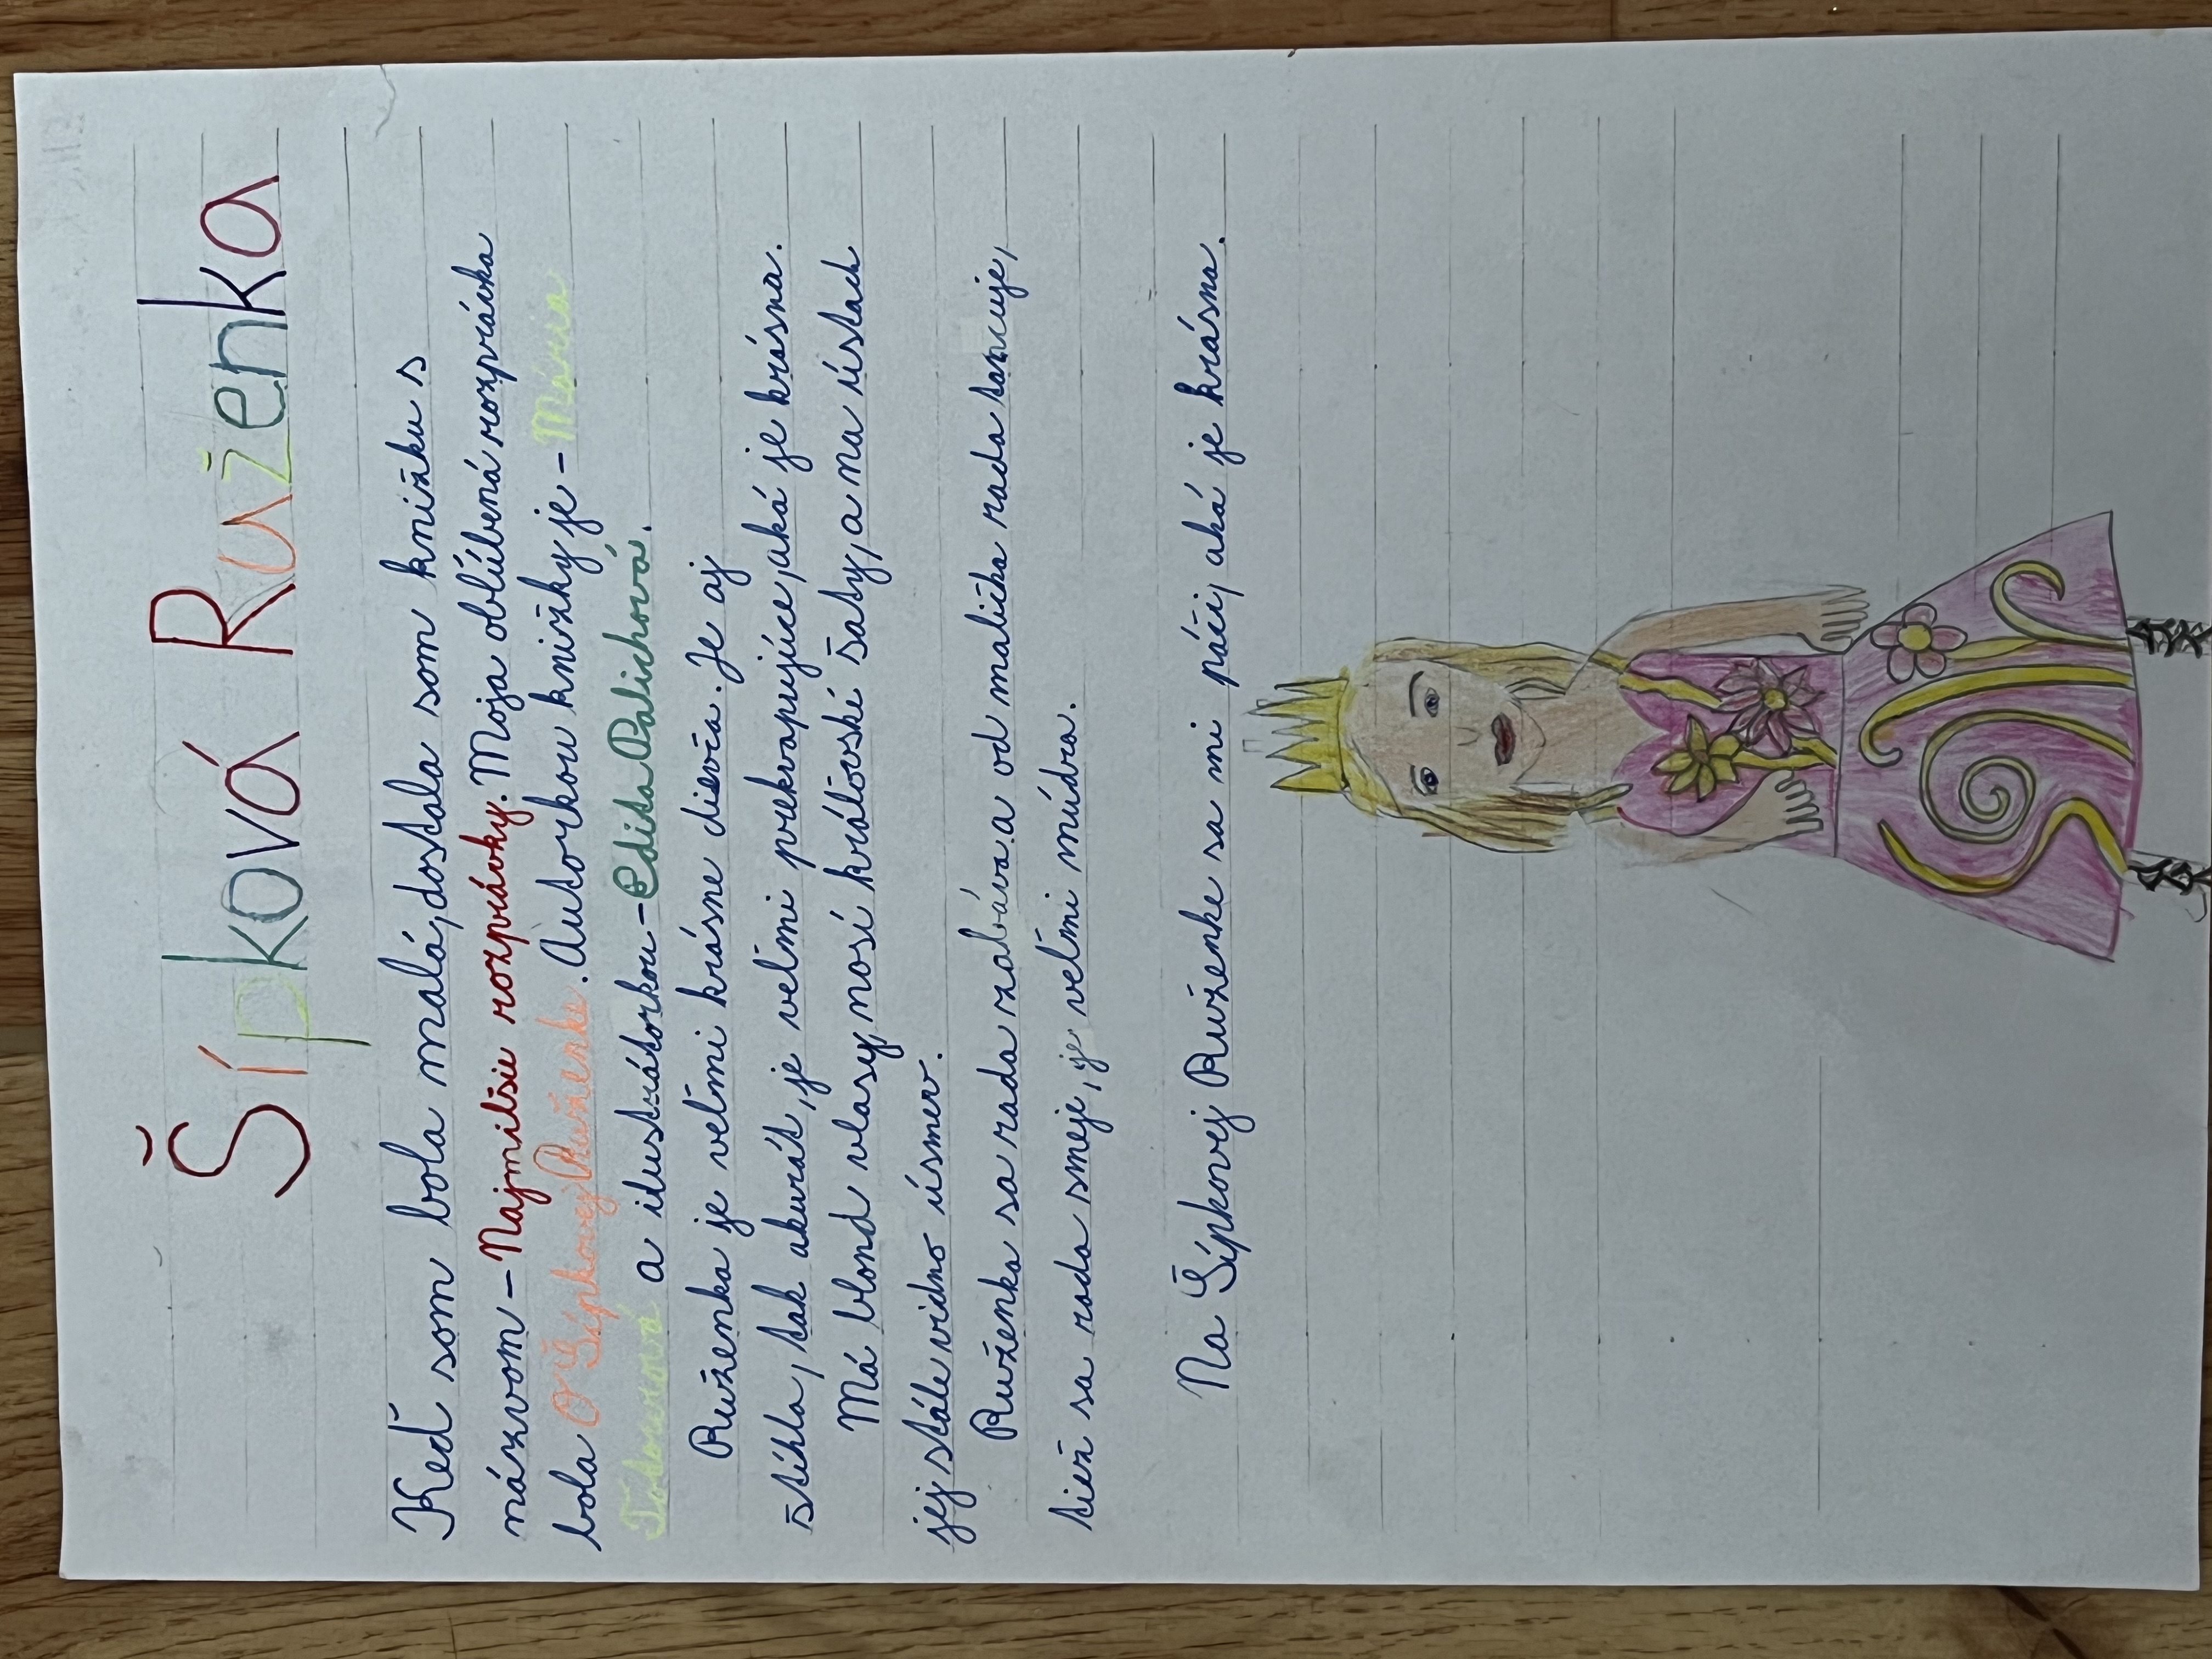 Šípková Ruženka
Keď som bola malá, dostala som knižku s
názvom - Najmilšie rozprávky. Moja obľúbená rozprávka
bola O Šípkovej Ruženke. Autorkou knižky je - Mária
a ilustrátorkou - Edita Palichová.
Ruženka je veľmi krásne dievča. Je aj
štíhla, tak akurát, je veľmi prekvapujúce, aká je krásna.
Má blond vlasy, nosí kráľovské šaty, a na ústach
jej stále vidno úsmev.
Ruženka sa rada zabáva a od malička rada tancuje,
tiež sa rada smeje, je veľmi múdra.
Na Šípkovej Ruženke sa mi páči, aká je krásna.